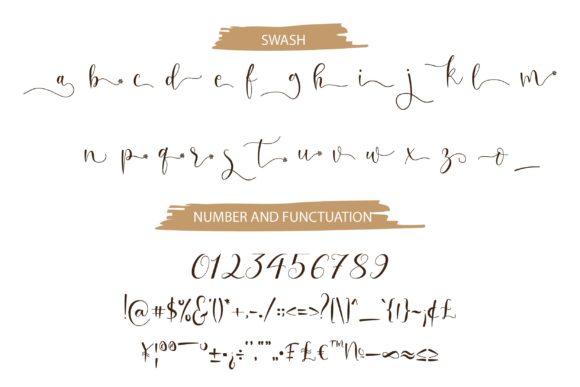 SWASH
a b c d e f g h i j k l m
n p q r s t u v w x z o _
NUMBER AND FUNCTUATION
0123456789
!@#$%&'()*+,-./:;<=>?[\]^_`{|}~¡¢£
¥¦ºº¯°±·¿÷‘’‚“”„•₣₤€™№−∞≈≤≥